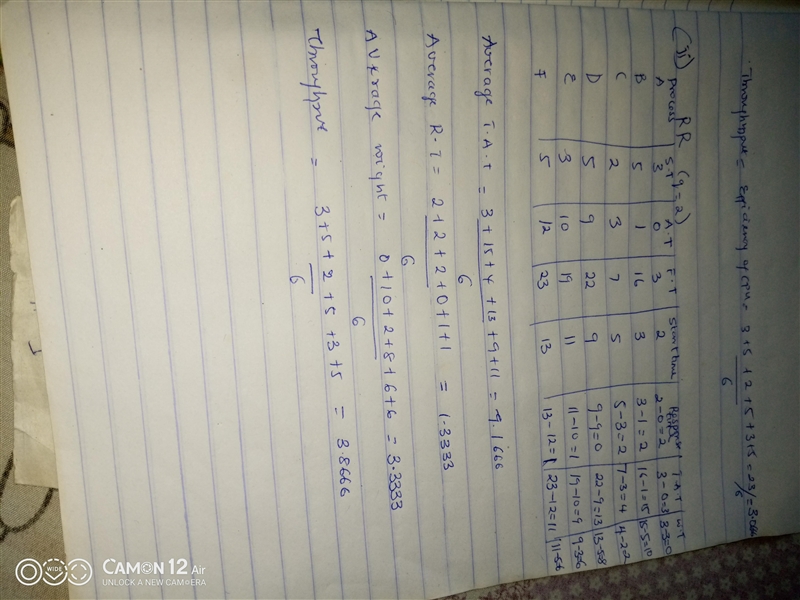 Throughput = Efficiency of CPU = 3+5+2+5+3+5 = 23/6 = 3.
6
(ii) RR (q=2)
Process | S.T | A.T | F.T | Start time | Response time | T.A.T | W.T
A 3 0 3 2 2-0=2 3-0=3 3-3=0
B 5 1 16 3 3-1=2 16-1=15 15-5=10
C 2 3 7 5 5-3=2 7-3=4 4-2=2
D 5 9 22 9 9-9=0 22-9=13 13-5=8
E 3 10 19 11 11-10=1 19-10=9 9-3=6
F 5 12 23 13 13-12=1 23-12=11 11-5=6
Average T.A.T = 3+15+4+13+9+11 = 9.1666
6
Average R.T = 2+2+2+0+1+1 = 1.3333
6
Average weight = 0+10+2+8+6+6 = 3.3333
6
Throughput = 3+5+2+5+3+5 = 3.8666
6
WIDE
CAMON 12 Air
UNLOCK A NEW CAMERA